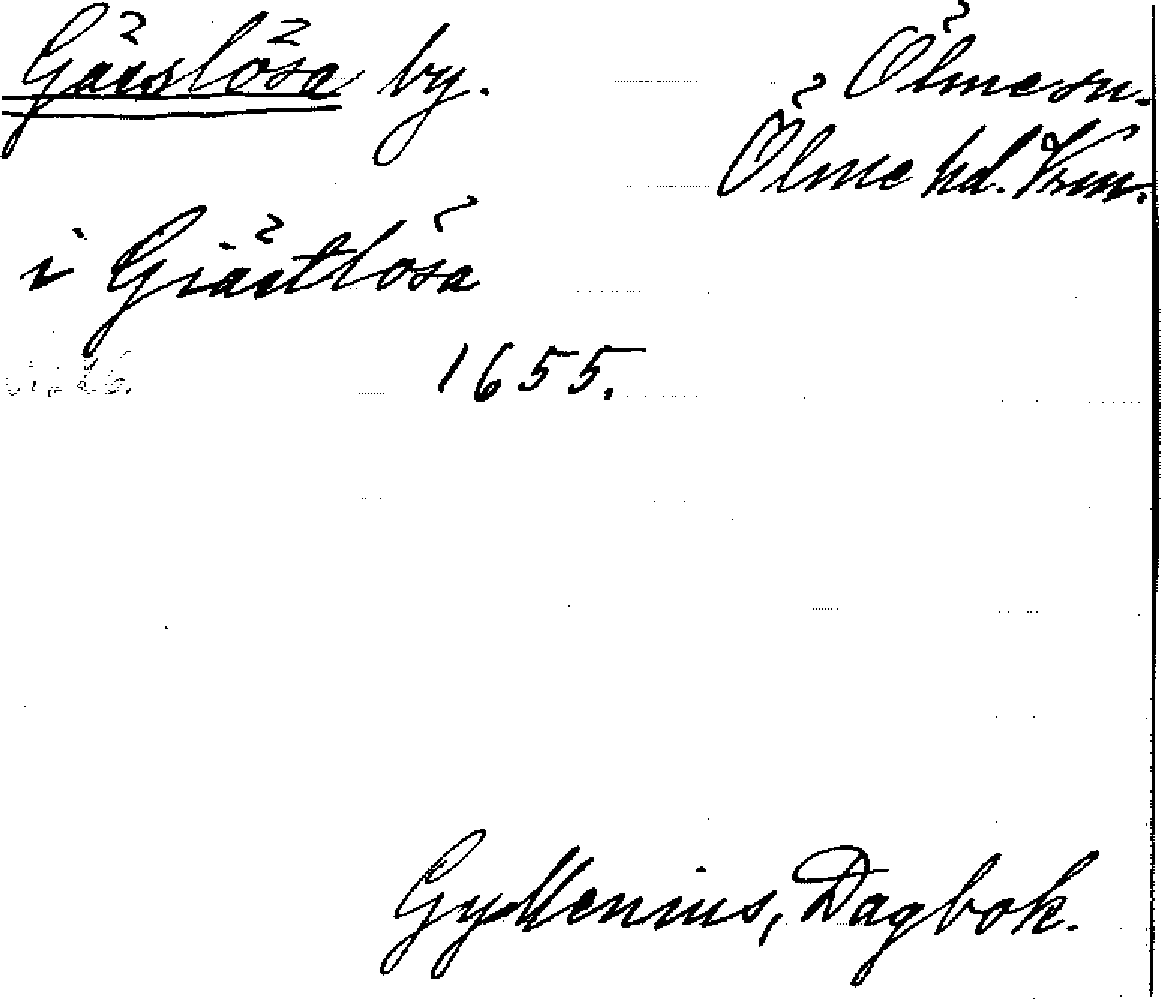 Gärslösa by. Ölme sn.
Ölme hd. Vrm.
i Giästlösa
1655.
Gyllenius, Dagbok.